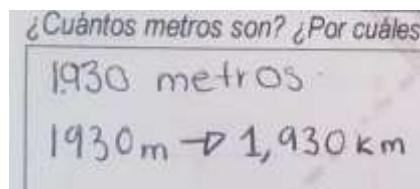 ¿Cuántos metros son? ¿Por cuáles
1.930 metros.
1930m → 1,930 km